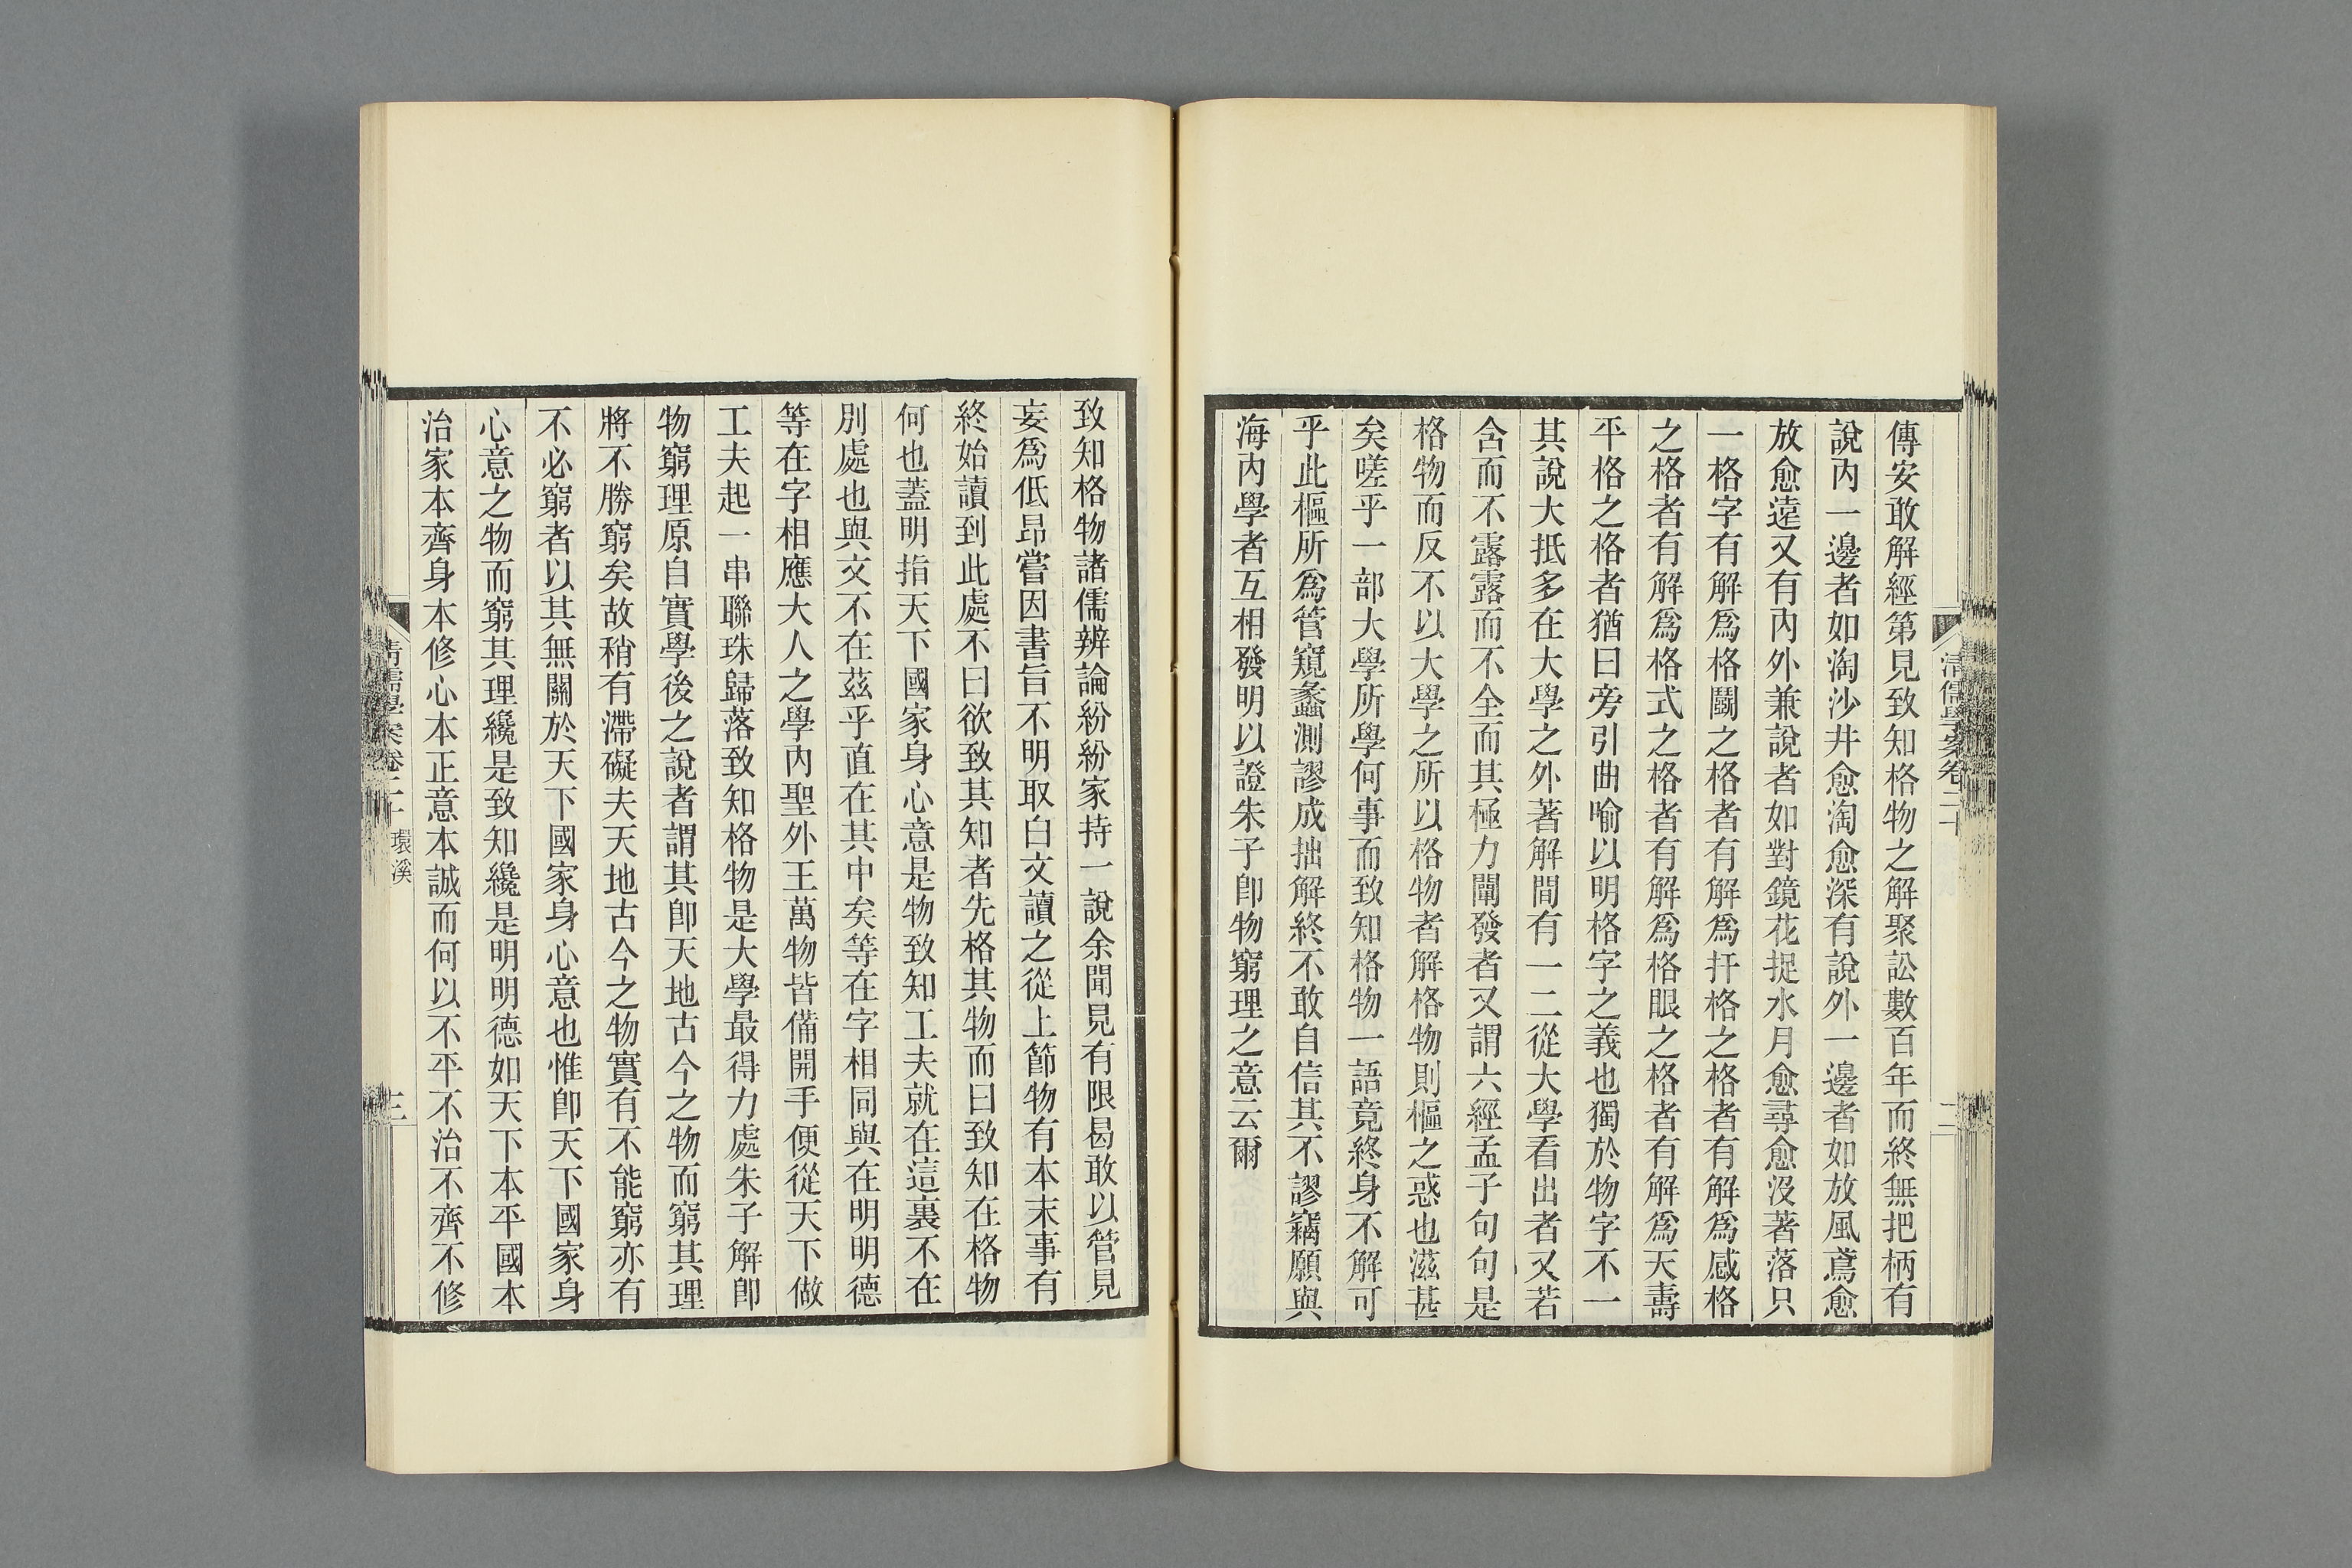 傳安敢解經第見致知格物之解聚訟數百年而終無把柄有
說內一邊者如淘沙井愈淘愈深有說外一邊者如放風鳶愈
放愈遠又有內外兼說者如對鏡花捉水月愈尋愈沒著落只
一格字有解爲格鬭之格者有解爲扞格之格者有解爲感格
之格者有解爲格式之格者有解爲格眼之格者有解爲天壽
平格之格者猶曰旁引曲喻以明格字之義也獨於物字不一
其說大抵多在大學之外著解間有一二從大學看出者又若
含而不露露而不全而其極力闡發者又謂六經孟子句句是
格物而反不以大學之所以格物者解格物則樞之惑也滋甚
矣嗟乎一部大學所學何事而致知格物一語竟終身不解可
乎此樞所爲管窺蠡測謬成拙解終不敢自信其不謬竊願與
海內學者互相發明以證朱子卽物窮理之意云爾
清儒學案卷二十
二
致知格物諸儒辨論紛紛家持一說余聞見有限曷敢以管見
妄爲低昂嘗因書旨不明取白文讀之從上節物有本末事有
終始讀到此處不曰欲致其知者先格其物而曰致知在格物
何也蓋明指天下國家身心意是物致知工夫就在這裏不在
別處也與文不在茲乎直在其中矣等在字相同與在明明德
等在字相應大人之學內聖外王萬物皆備開手便從天下做
工夫起一串聯珠歸落致知格物是大學最得力處朱子解卽
物窮理原自實學後之說者謂其卽天地古今之物而窮其理
將不勝窮矣故稍有滯礙夫天地古今之物實有不能窮亦有
不必窮者以其無關於天下國家身心意也惟卽天下國家身
心意之物而窮其理纔是致知纔是明明德如天下本平國本
治家本齊身本修心本正意本誠而何以不平不治不齊不修
清儒學案卷二十 環溪
三